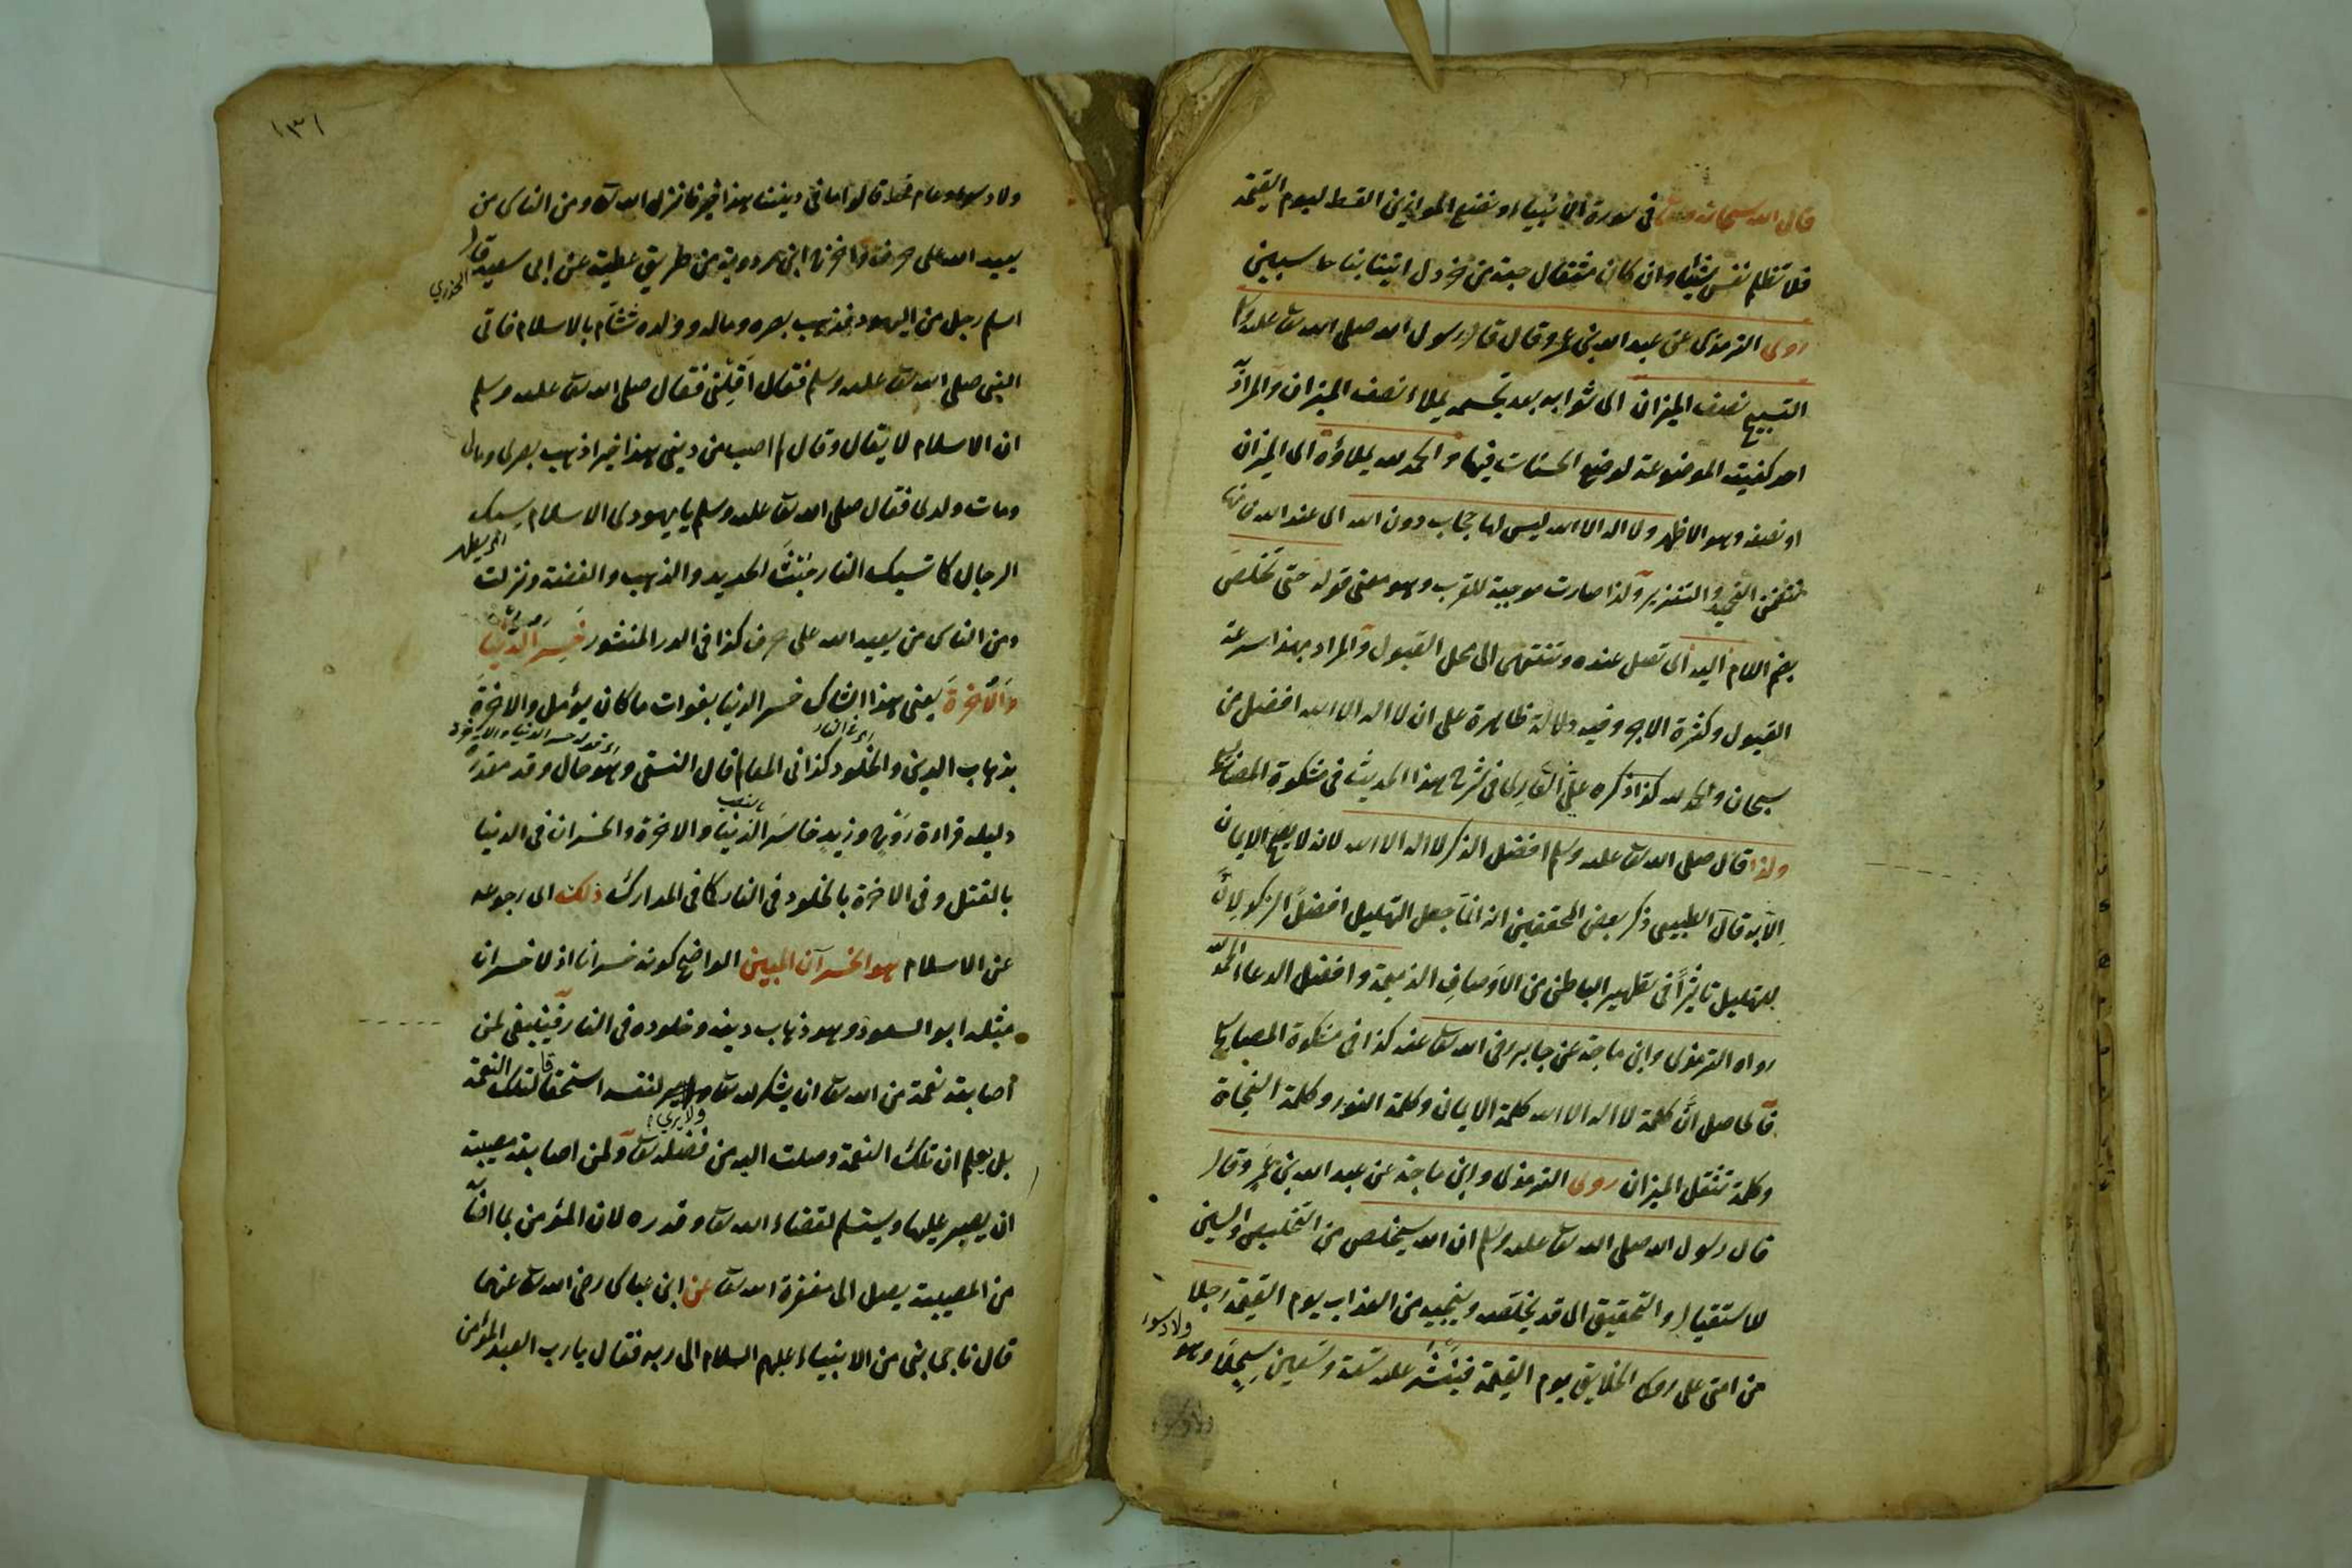 قال الله سبحانه وتعالى في سورة الانبياء ونضع الموازين القسط ليوم القيمة
فلا تظلم نفس شيئا وان كان مثقال حبة من خردل اتينا بها وكفى بنا حاسبين
روى الترمذي عن عبد الله بن عمرو قال قال رسول الله صلى الله تعالى عليه وسلم
التسبيح نصف الميزان اي ثوابه بعد تجسمه يملاء نصف الميزان والمراد
احد كفتيه الموضوعة لوضع الحسنات فيها والحمد لله يملاؤه اي الميزان
او نصفه وهو الاظهر ولا اله الا الله ليس لها حجاب دون الله اي عند الله
والتنزيه ولذا صارت موجبة للقرب وهو معنى قوله حتى تخلص
بضم اللام اليه اي تصل عنده وتنتهي الى محل القبول والمراد بهذا سرعة
القبول وكثرة الاجر وفيه دلالة ظاهرة على ان لا اله الا الله افضل من
سبحان والحمد لله كذا ذكره علي القاري في شرح هذا الحديث في مشكوة المصابيح
ولذا قال صلى الله تعالى عليه وسلم افضل الذكر لا اله الا الله لانه لا يصح الايمان
الا به قال الطيبي ذكر بعض المحققين انه انما جعل التهليل افضل الذكر لان
للتهليل تاثيرا في تطهير الباطن من الاوصاف الذميمة وافضل الدعاء الحمد لله
رواه الترمذي وابن ماجة عن جابر رضي الله تعالى عنه كذا في مشكوة المصابيح
فالحاصل ان كلمة لا اله الا الله كلمة الايمان وكلمة النور وكلمة النجاة
وكلمة تثقل الميزان روى الترمذي وابن ماجة عن عبد الله بن عمرو قال
قال رسول الله صلى الله تعالى عليه وسلم ان الله سيخلص من التخليص والسين
للاستقبال والتحقيق اي قد يخلصه وينجيه من العذاب يوم القيمة رجلا
من امتي على روس الخلايق يوم القيمة فينشر عليه تسعة وتسعين سجلا وهو
١٣١
قالوا ما في ديننا هذا خير فانزل الله تعالى ومن الناس من
يعبد الله على حرف واخرج ابن مردويه من طريق عطية عن ابي سعيد قال
الخدري
اسلم رجل من اليهود فذهب بصره وماله وولده فتشأم بالاسلام فاتى
النبي صلى الله تعالى عليه وسلم فقال اقلني فقال صلى الله تعالى عليه وسلم
ان الاسلام لا يقال وقال لم اصب من ديني هذا خيرا ذهب بصري ومالي
ومات ولدي فقال صلى الله تعالى عليه وسلم يا يهودي الاسلام يسبك
الرجال كما تسبك النار خبث الحديد والذهب والفضة ونزلت
ومن الناس من يعبد الله على حرف كذا في الدر المنثور خسر الدنيا
والآخرة يعني هذا الشاك خسر الدنيا بفوات ما كان يؤمل والاخرة
بذهاب الدين والخلود كذا في المعالم قال النسفي وهو حال وقد مقدرة
دليله قراءة روح وزيد خاسر الدنيا والاخرة والخسران في الدنيا
بالقتل وفي الاخرة بالخلود في النار كما في المدارك ذلك اي رجوعه
عن الاسلام هو الخسران المبين الواضح كونه خسرانا اذ لا خسران
مثله ابو السعود وهو ذهاب دينه وخلوده في النار فينبغي لمن
اصابته نعمة من الله تعالى ان يشكر لله تعالى ولا يرى لنفسه استحقاقا لتلك النعمة
بل يعلم ان تلك النعمة وصلت اليه من فضله تعالى ولمن اصابته مصيبة
ان يصبر عليها ويستسلم لقضاء الله تعالى وقدره لان المؤمن بما اصابه
من المصيبة يصل الى مغفرة الله تعالى عن ابن عباس رضي الله تعالى عنهما
قال ناجى نبي من الانبياء عليهم السلام الى ربه فقال يا رب العبد المؤمن